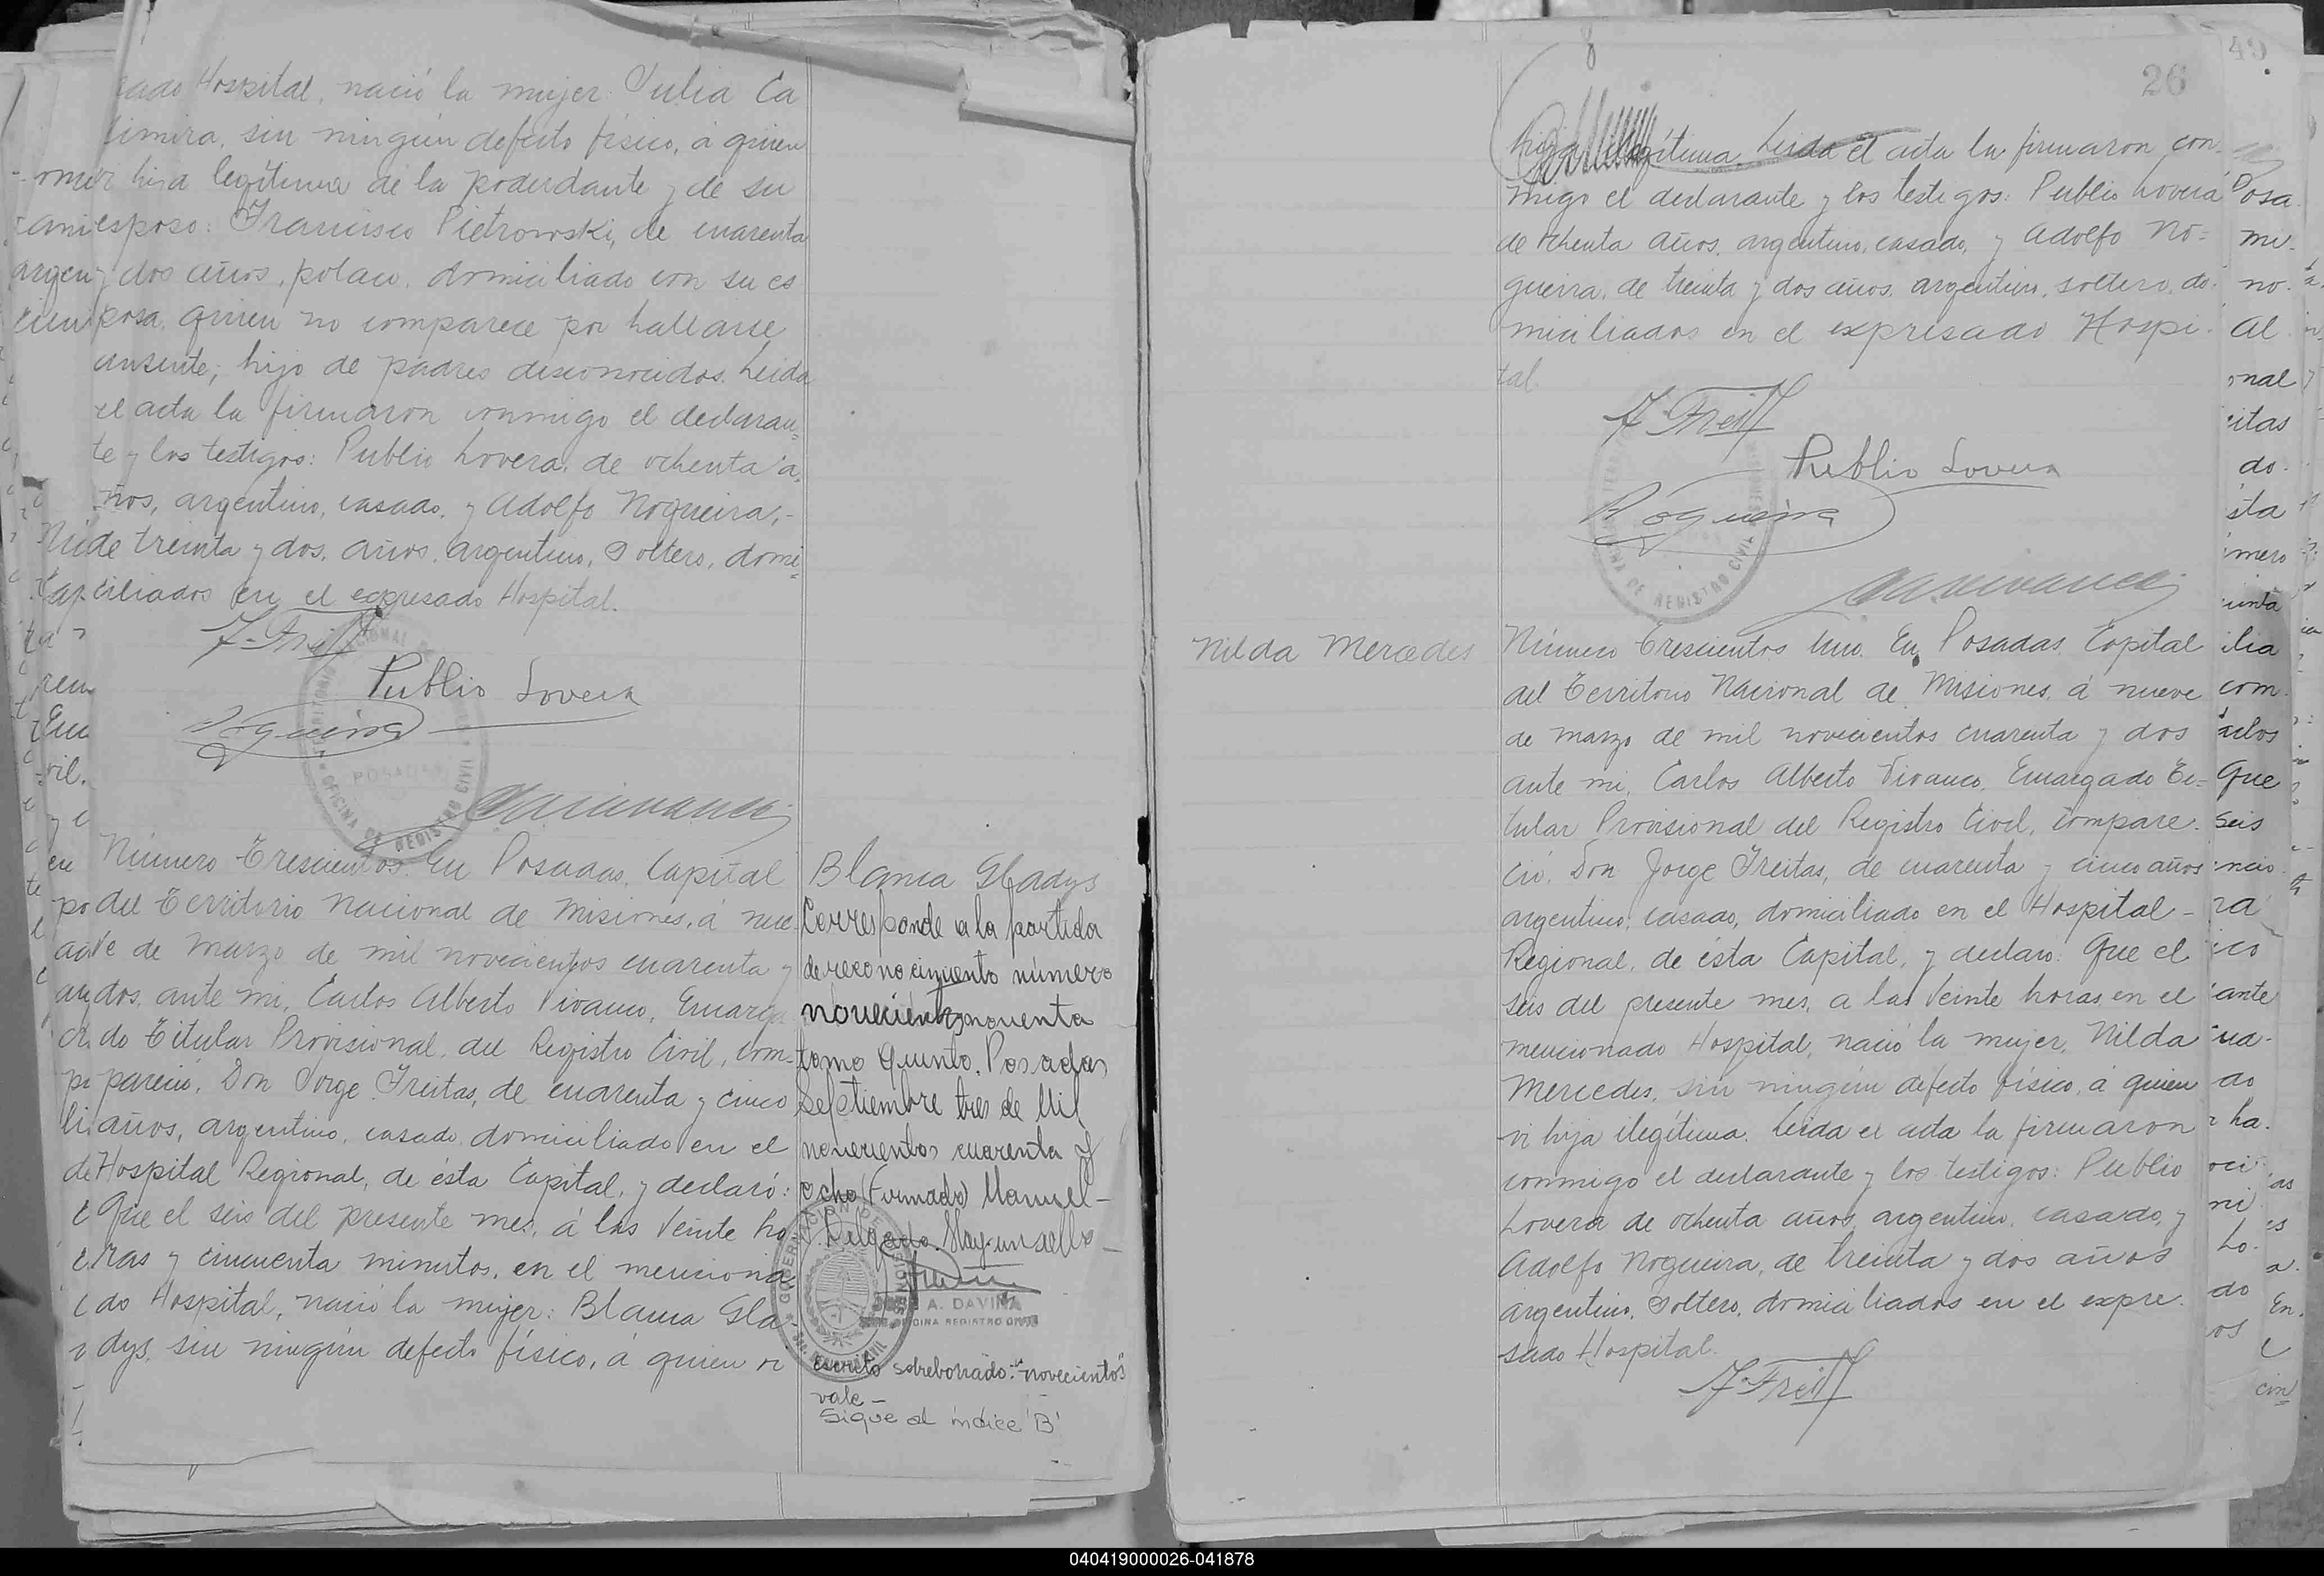 Hospital, nació la mujer: Julia Ca
simira, sin ningún defecto físico, á quien
hija legítima de la poderdante y de su
esposo: Francisco Pietrowski, de cuarenta
y dos años, polaco, domiciliado con su es
posa, quien no comparece por hallarse
ausente; hijo de padres desconocidos. Leida
el acta la firmaron conmigo el declaran=
te y los testigos: Publio Lovera, de ochenta a
ños, argentino, casado, y Adolfo Nogueira,-
de treinta y dos, años, argentino, Soltero, domi=
ciliados en el expresado Hospital.
J. Freitas
Publio Lovera
Nogueira
POSADAS
OFICINA DE REGISTRO CIVIL
Número Trescientos. En Posadas, Capital
del Territorio Nacional de Misiones, á nue-
ve de Marzo de mil novecientos cuarenta y
dos, ante mi, Carlos Alberto Vivanco, Encarga
do Titular Provisional, del Registro Civil, com-
pareció, Don Jorge Freitas, de cuarenta y cinco
años, argentino, casado, domiciliado en el
Hospital Regional, de ésta Capital, y declaró:
Que el seis del presente mes, á las Veinte ho
ras y cincuenta minutos, en el menciona
do Hospital, nació la mujer: Blanca Gla-
dys, sin ningún defecto físico, á quien vi
Blanca Gladys
Corresponde a la partida
de reconocimiento número
novecientos noventa
tomo Quinto. Posadas
Septiembre tres de Mil
novecientos cuarenta y
ocho (Firmado) Manuel-
Delgado. Hay un sello-
GOBERNACION DE MISIONES
A. DAVIÑA
OFICINA REGISTRO CIVIL
escrito sobreborrado: "novecientos"
vale-
Sigue al índice "B"
26
49
hija ilegítima. Leida el acta la firmaron con-
migo el declarante y los testigos: Publio Lovera
de ochenta años, argentino, casado, y Adolfo No=
gueira, de treinta y dos años, argentino, soltero, do-
miciliados en el expresado Hospi-
tal.
J. Freitas
Publio Lovera
Nogueira
OFICINA DE REGISTRO CIVIL
Nilda Mercedes
Número Trescientos Uno. En Posadas, Capital
del Territorio Nacional de Misiones, á nueve
de marzo de mil novecientos cuarenta y dos
ante mi, Carlos Alberto Vivanco, Encargado Ti-
tular Provisional del Registro Civil, compare-
ció, Don Jorge Freitas, de cuarenta y cinco años
argentino, casado, domiciliado en el Hospital-
Regional, de ésta Capital, y declaro: Que el
seis del presente mes, a las Veinte horas, en el
mencionado Hospital, nació la mujer, Nilda
Mercedes, sin ningún defecto físico, á quien
vi hija ilegítima. Leida el acta la firmaron
conmigo el declarante y los testigos: Publio
Lovera de ochenta años, argentino, casado, y
Adolfo Nogueira, de treinta y dos años
argentino, Soltero, domiciliados en el expre-
sado Hospital.
J. Freitas
040419000026-041878